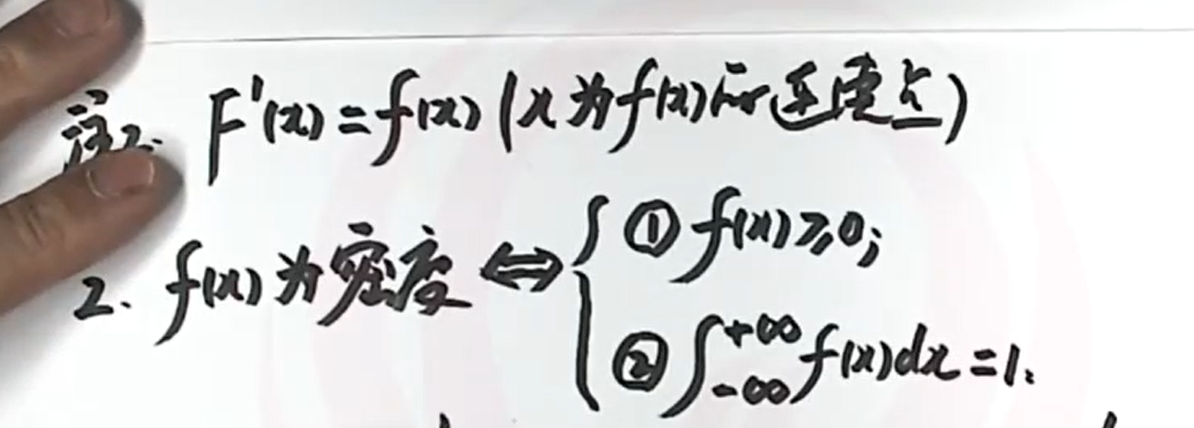 注: F'(x)=f(x)(x为f(x)的连续点)
2. f(x)为密度 ⇔ { ① f(x)≥0;
② ∫_{-∞}^{+∞} f(x)dx=1.